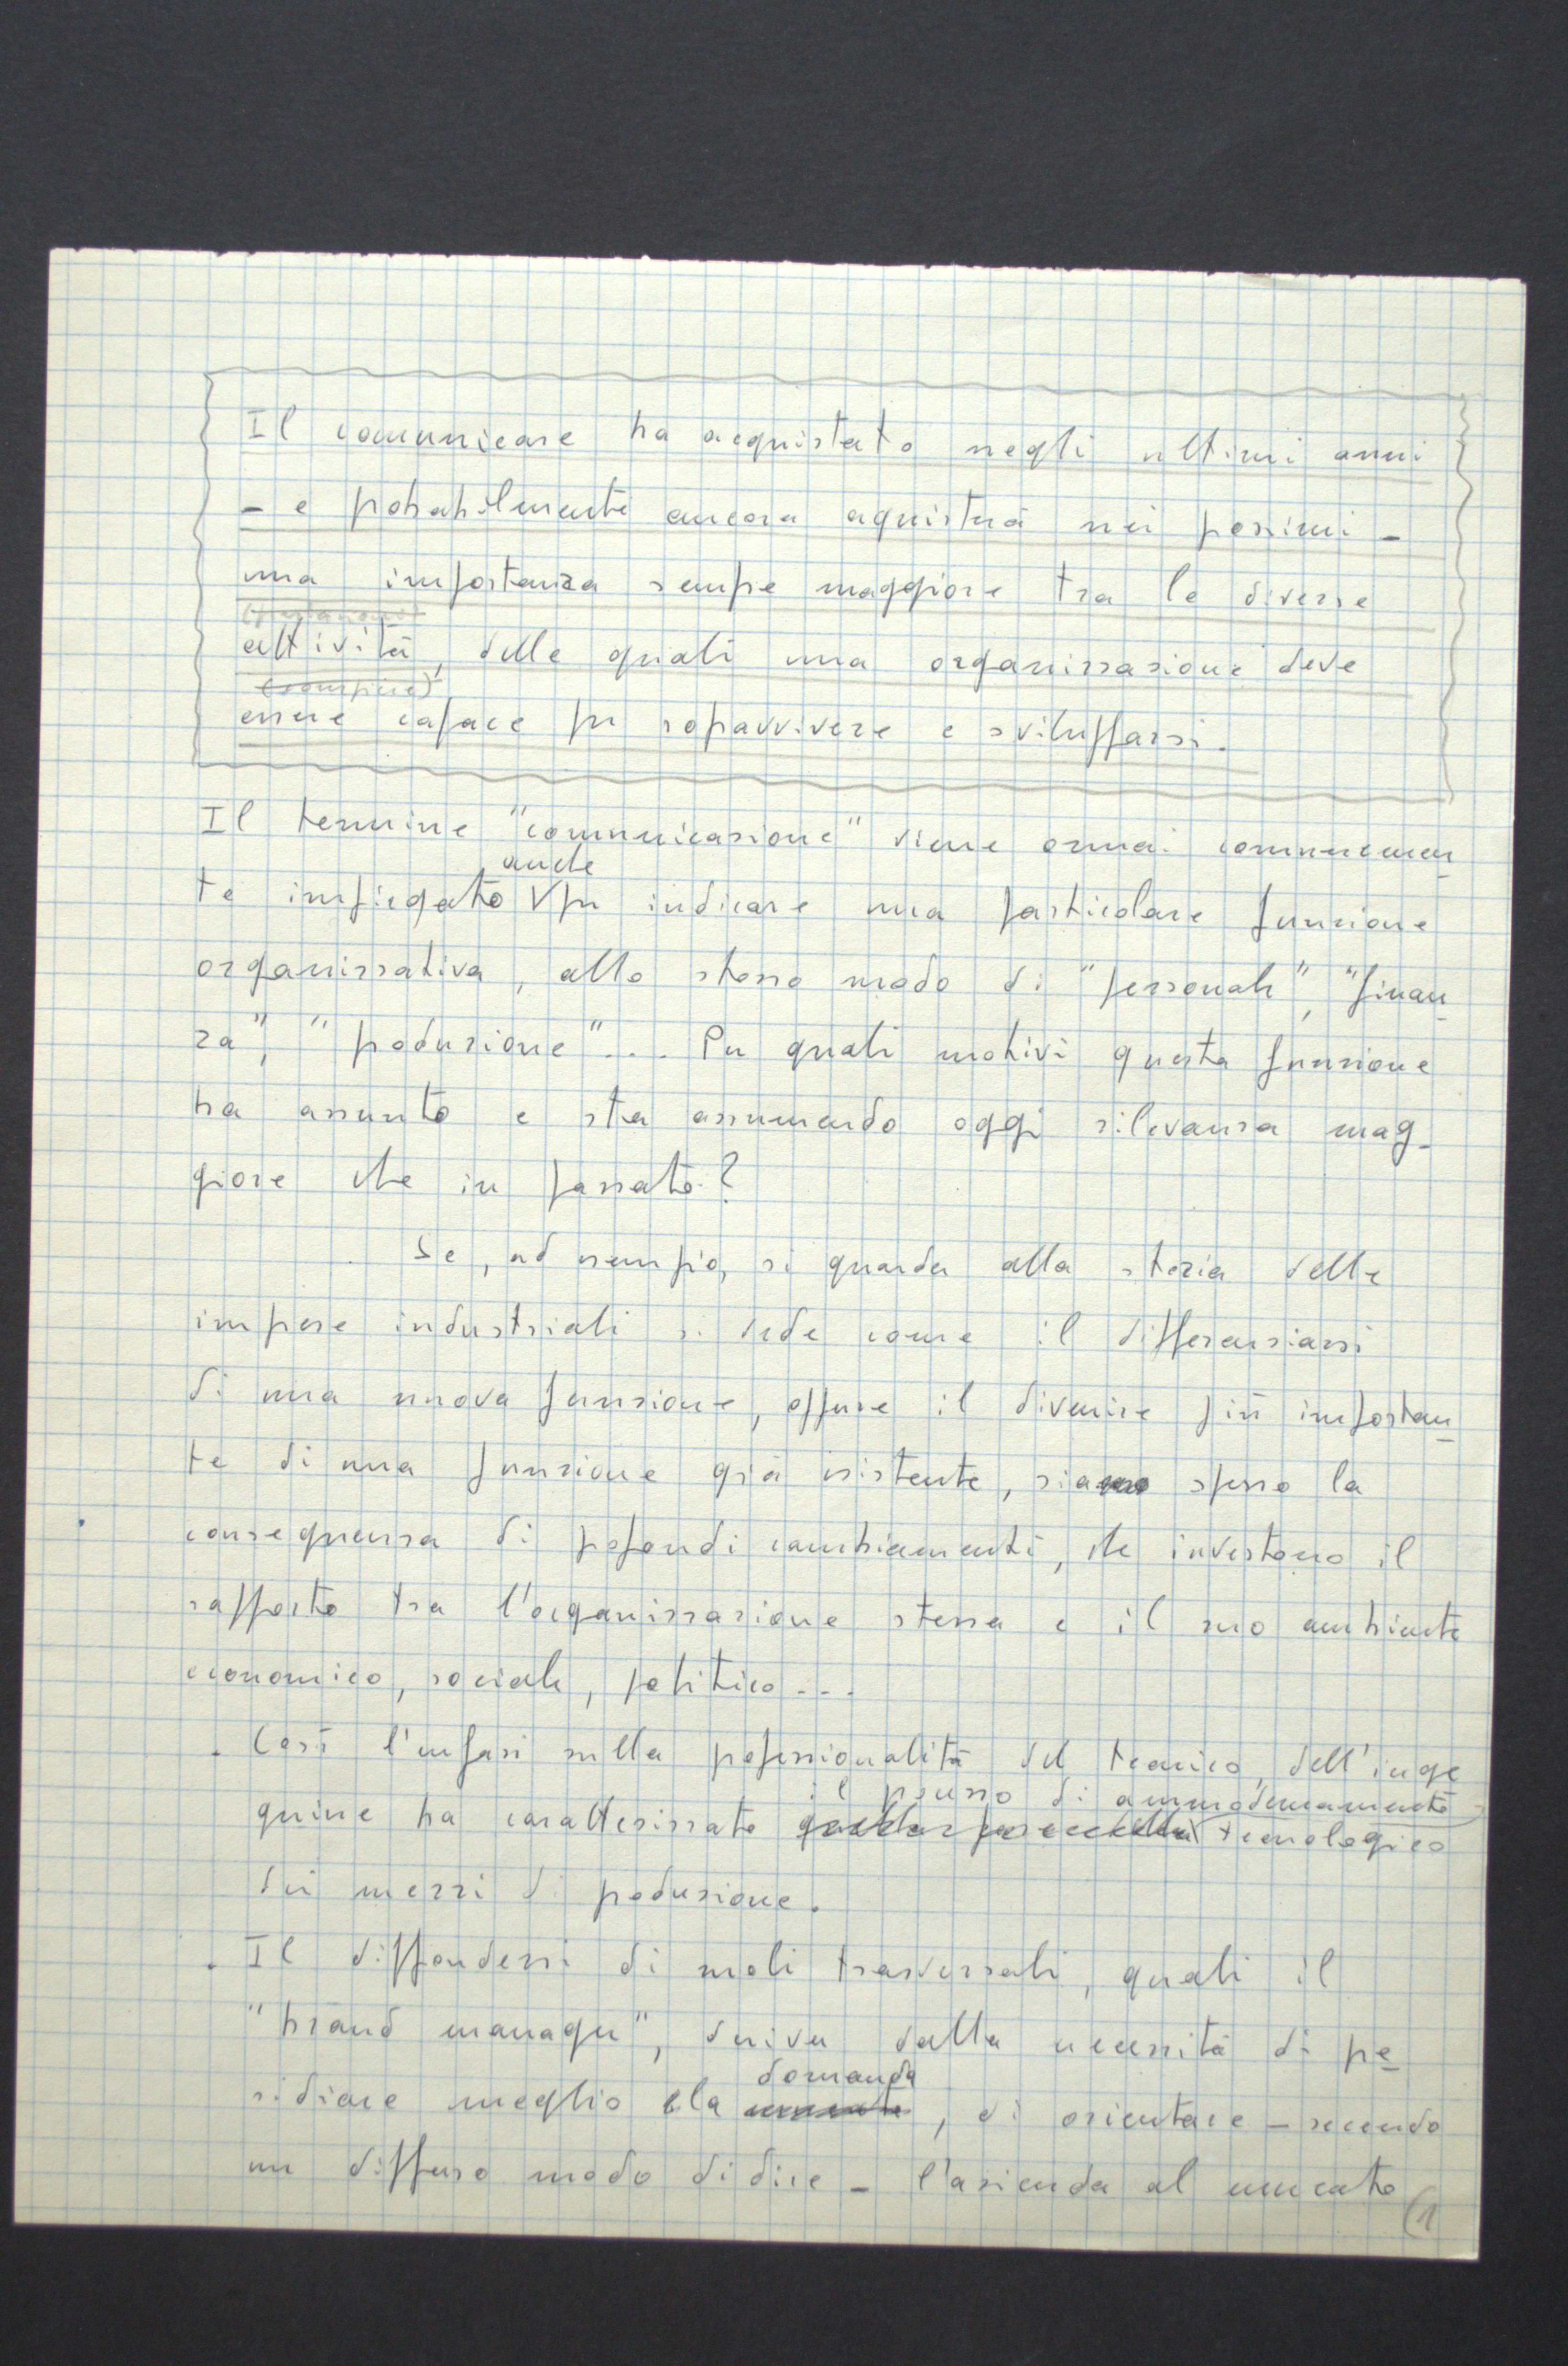 Il comunicare ha acquistato negli ultimi anni
- e probabilmente ancora aquisterà nei prossimi -
una importanza sempre maggiore tra le diverse
attività, delle quali una organizzazione deve
essere capace per sopravvivere e svilupparsi.
Il termine "comunicazione" viene ormai comunemen
anche
te impiegato per indicare una particolare funzione
organizzativa, allo stesso modo di "personale", "finan
za", "produzione"... Per quali motivi questa funzione
ha assunto e sta assumendo oggi rilevanza mag-
giore che in passato?
Se, ad esempio, si guarda alla storia delle
imprese industriali si vede come il differenziarsi
di una nuova funzione, oppure il divenire più importan
te di una funzione già esistente, sia spesso la
conseguenza di profondi cambiamenti, che investono il
rapporto tra l'organizzazione stessa e il suo ambiente
economico, sociale, politico...
. Così l'enfasi sulla professionalità del tecnico, dell'inge
il processo di ammodernamento
gnere ha caratterizzato tecnologico
dei mezzi di produzione.
. Il diffondersi di ruoli trasversali, quali il
"brand manager", deriva dalla necessità di pre
domanda
sidiare meglio la , di orientare - secondo
un diffuso modo di dire - l'azienda al mercato
(1